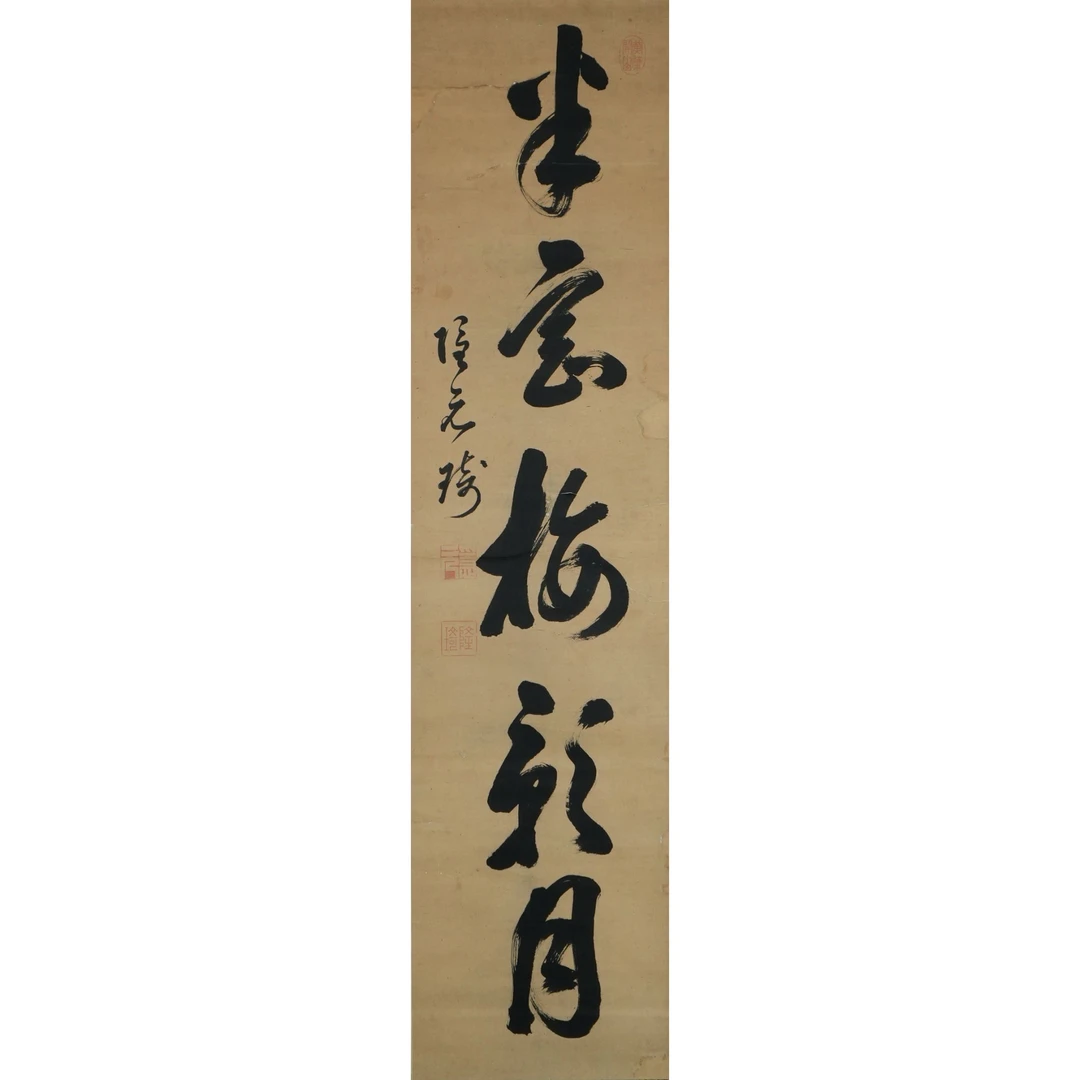 半窓梅影月
隠元琦